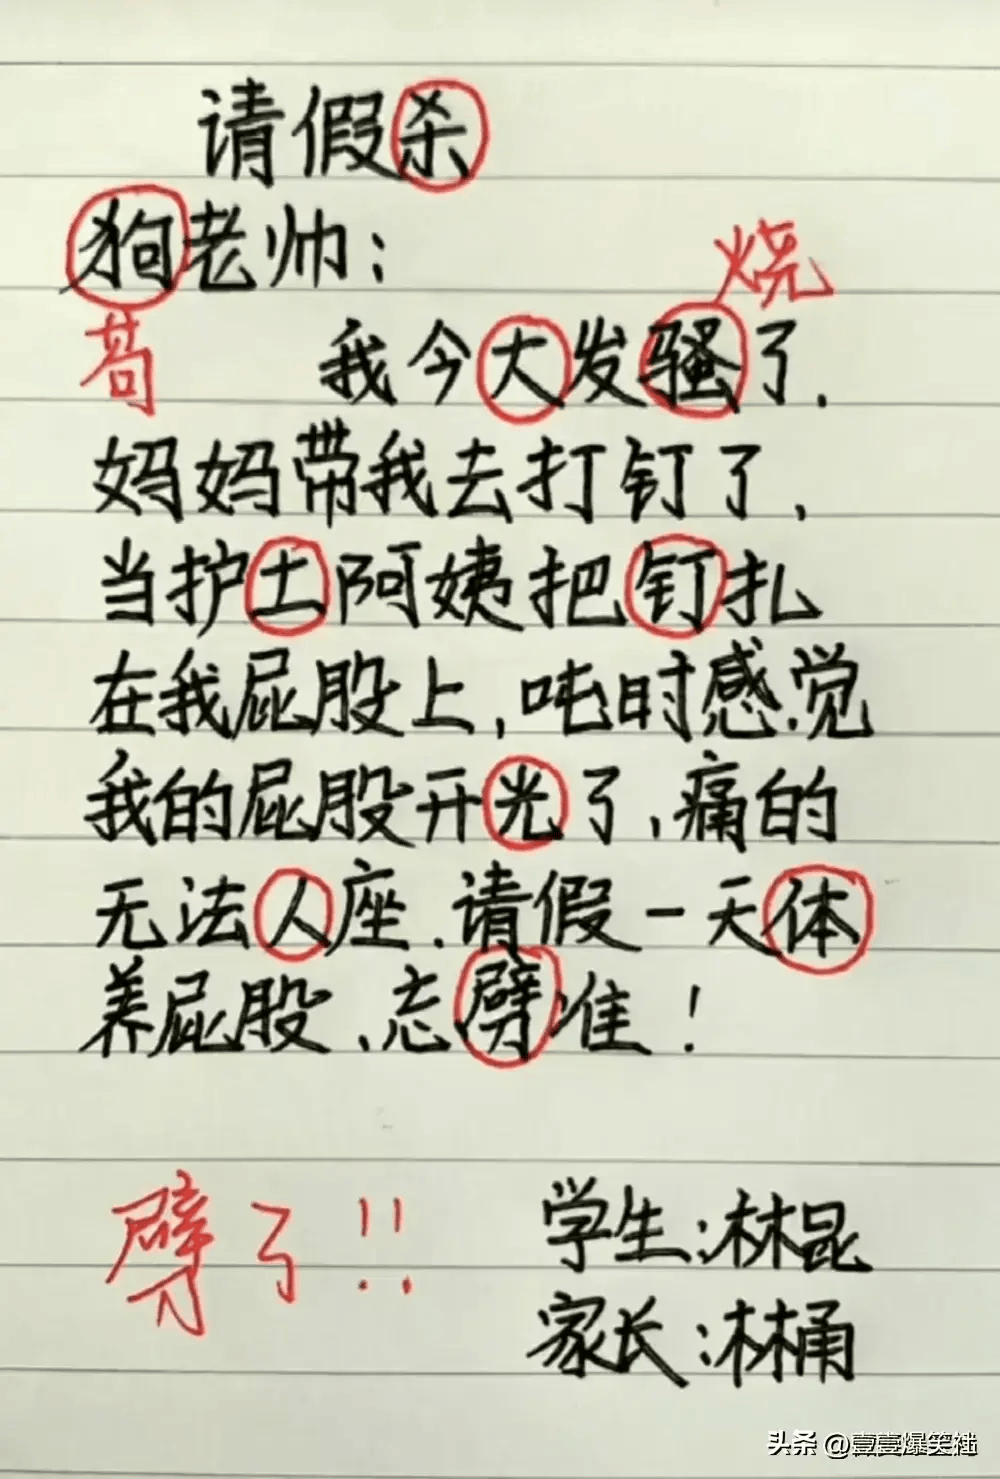 请假杀
狗老帅：
烧
苟
我今大发骚了．
妈妈带我去打钉了．
当护土阿姨把钉扎
在我屁股上，吨时感觉
我的屁股开光了，痛的
无法人座．请假一天体
养屁股、忘劈准！
劈了！！
学生：林昆
家长：林桶
头条 @壹壹爆笑社